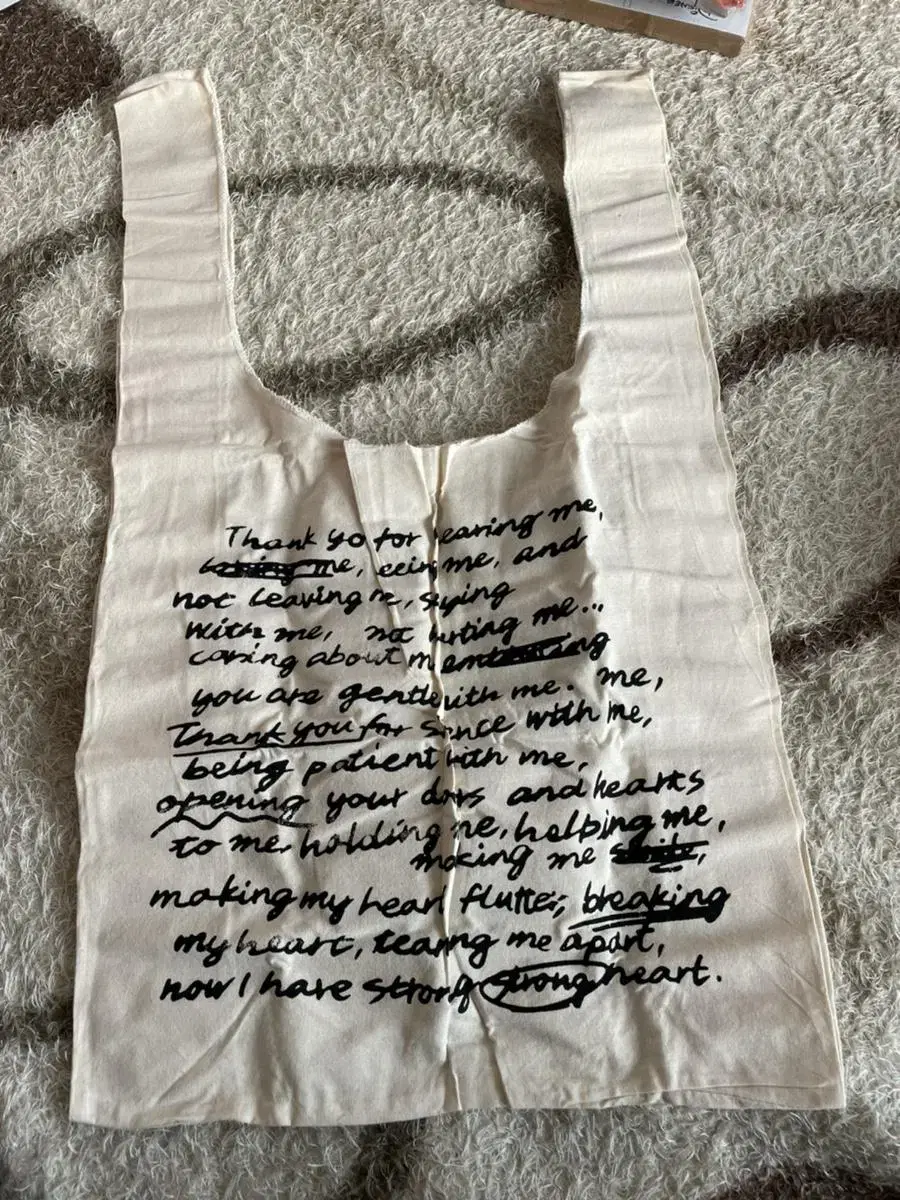 Thank yo for earing me,
me, eein me, and
not leaving me, staying
with me, not urting me...
caring about m
you are gentle ith me. me,
Thank you for s ence with me,
being patient with me,
opening your doors and hearts
to me, holding me, helping me,
making me smile,
making my heart flutter, breaking
my heart, tearing me apart,
now I have strong strong heart.